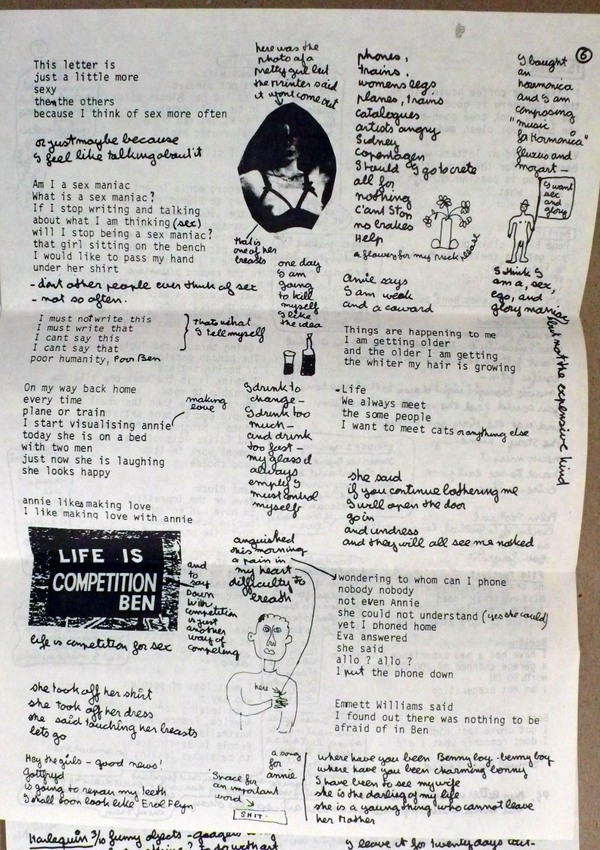 6
This letter is
just a little more
sexy
then the others
because I think of sex more often
or just maybe because
I feel like talking about it
Am I a sex maniac
What is a sex maniac?
If I stop writing and talking
about what I am thinking (sex)
will I stop being a sex maniac?
that girl sitting on the bench
I would like to pass my hand
under her shirt
- dont other people ever think of sex
- not so often.
I must not write this
I must write that
I cant say this
I cant say that
poor humanity, Poor Ben
Thats what
I tell myself
On my way back home
every time
plane or train
I start visualising annie
today she is on a bed
with two men
just now she is laughing
she looks happy
making
love
annie likes making love
I like making love with annie
LIFE IS
COMPETITION
BEN
life is competition for sex
and
to
say
Down
with
competition
is just
another
way of
competing
she took off her shirt
she took off her dress
she said touching her breasts
lets go
Hey the girls - good news!
Gottfryd
is going to repair my teeth
I shall soon look like Erol Flyn
here was the
photo of a
pretty girl but
the printer said
it wont come out
that is
one of her
breasts
one day
I am
going
to kill
myself
I like
the idea
I drink to
change -
I drink too
much -
and drink
too fast -
my glass is
always
empty I
must control
myself
anguished
this morning
a pain in
my heart
difficulty to
breath
here
Space for
an important
word
SHIT.
a song
for
annie
phones,
trains,
womens legs
planes, trains
catalogues
artists angry
Sidney
Copenhagen
Should I go to crete
all for
nothing
C'ant Stop
no brakes
Help
a flower for my prick please
Annie says
I am weak
and a coward
Things are happening to me
I am getting older
and the older I am getting
the whiter my hair is growing
-Life
We always meet
the some people
I want to meet cats or anything else
she said
if you continue bothering me
I will open the door
go in
and undress
and they will all see me naked
wondering to whom can I phone
nobody nobody
not even Annie
she could not understand (yes she could)
yet I phoned home
Eva answered
she said
allo ? allo ?
I put the phone down
Emmett Williams said
I found out there was nothing to be
afraid of in Ben
where have you been Benny boy - benny boy
where have you been charming benny
I have been to see my wife
she is the darling of my life
she is a young thing who cannot leave
her Mother
I bought
an
harmonica
and I am
composing
"music
for Harmonica"
fluxus and
mozart -
I want
sex
and
glory
I think I
am a, sex,
ego, and
glory maniac
but not the expensive kind
Harlequin 3/6 funny objects - gadgets
I leave it for twenty days